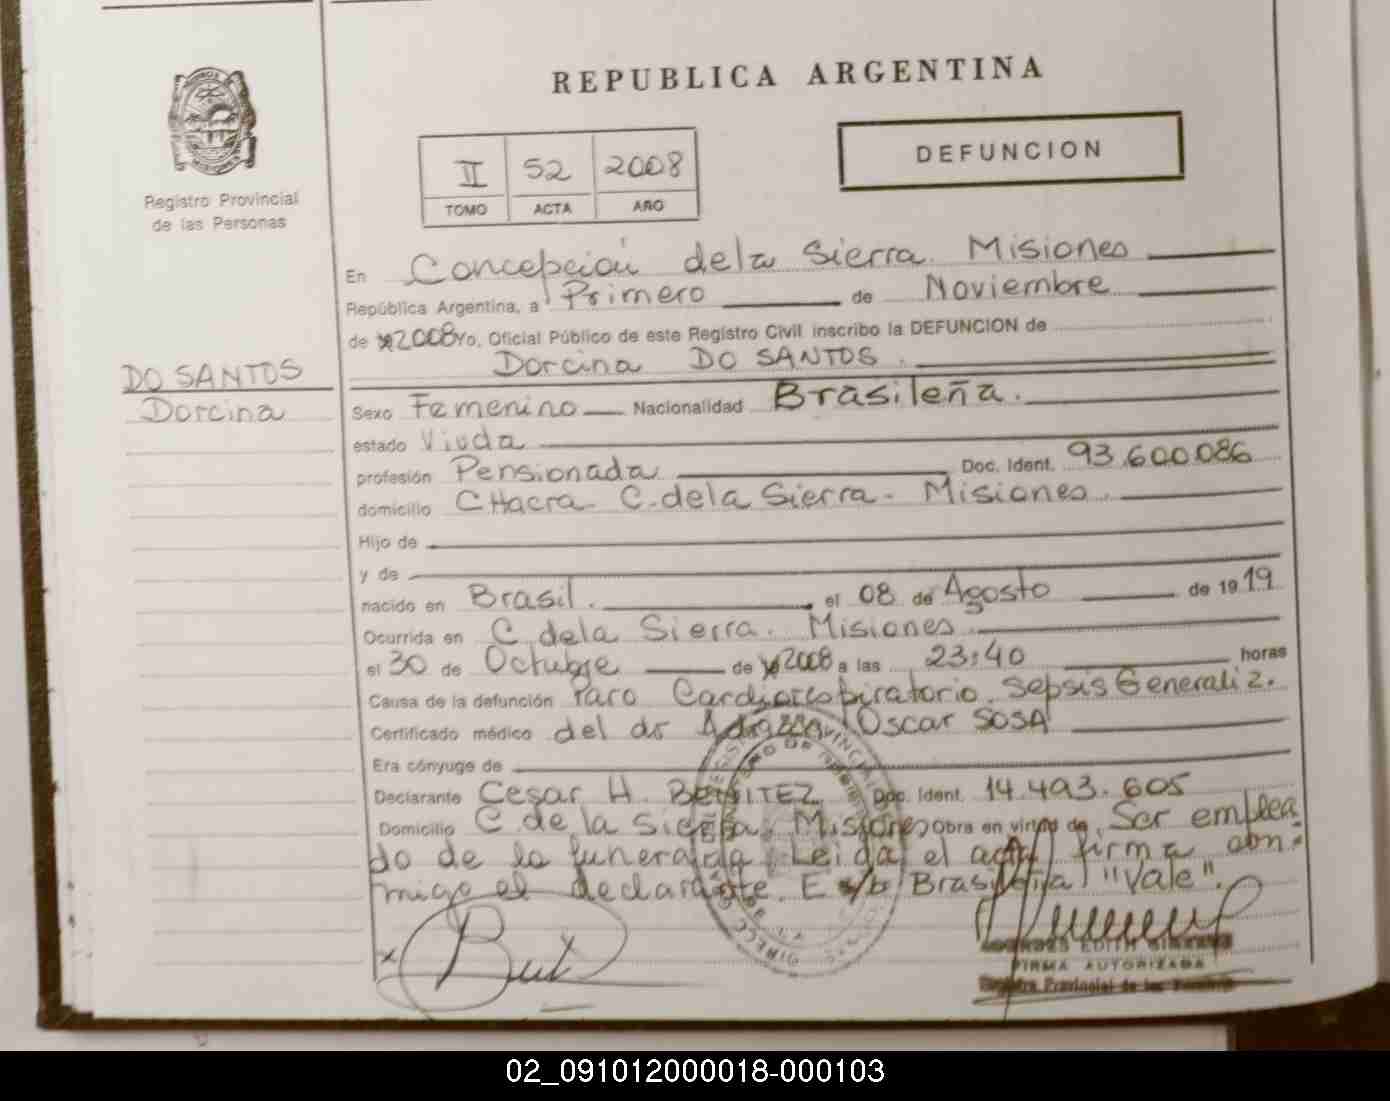 REPUBLICA ARGENTINA
Registro Provincial
de las Personas
II 52 2008
TOMO ACTA AÑO
DEFUNCION
En Concepción dela Sierra. Misiones
República Argentina, a Primero de Noviembre
de 2008 Yo, Oficial Público de este Registro Civil inscribo la DEFUNCION de
Dorcina DO SANTOS.
DO SANTOS
Dorcina
Sexo Femenino Nacionalidad Brasileña.
estado Viuda
profesión Pensionada Doc. Ident. 93.600.086
domicilio CHacra. C. dela Sierra. Misiones.
Hijo de
y de
nacido en Brasil. el 08 de Agosto de 1919
Ocurrida en C. dela Sierra. Misiones.
el 30 de Octubre de 2008 a las 23:40 horas
Causa de la defunción Paro Cardiorespiratorio. Sepsis Generaliz.
Certificado médico del dr Oscar SOSA
Era cónyuge de
Declarante Cesar H. BENITEZ Doc. Ident. 14.493.605
Domicilio C. de la Sierra. Misiones Obra en virtud de Ser emplea-
do de la funeraria. Leida el acta firma con-
migo el declarante. E s/b Brasileña "Vale".
EDITH
FIRMA AUTORIZADA
Registro Provincial de las Personas
02_091012000018-000103